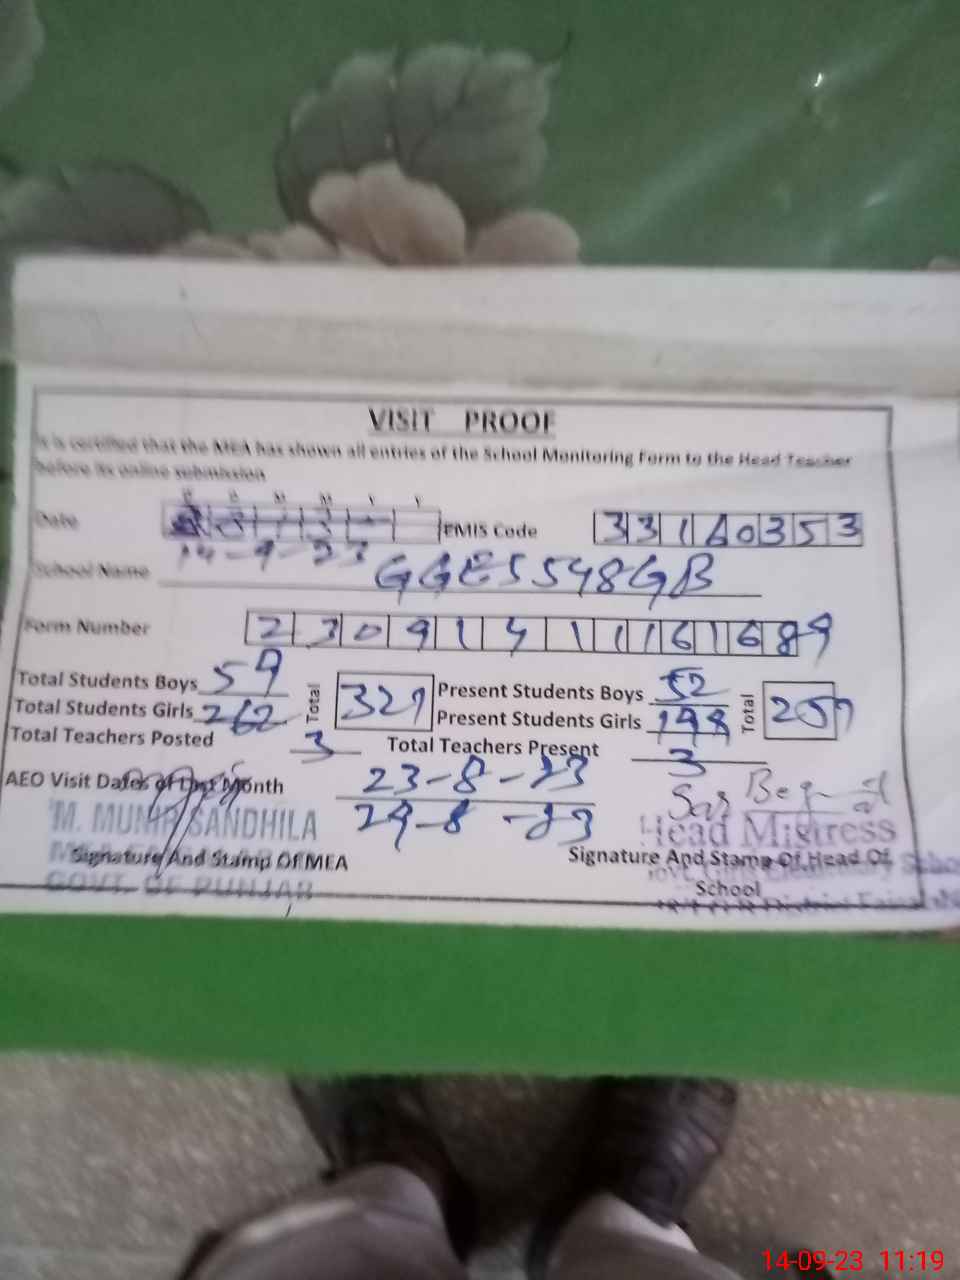 VISIT PROOF
It is certified that the MEA has shown all entries of the School Monitoring Form to the Head Teacher
before its online submission
D D M M Y Y
Date EMIS Code 33160353
14-9-23
School Name GGES 548GB
Form Number 2309141116168 9
Total Students Boys 59 Total 321 Present Students Boys 52 Total
Total Students Girls 262 Present Students Girls 198
Total Teachers Posted 3 Total Teachers Present 3
AEO Visit Dates of Last Month 23-8-23
29-8-23
M. MUNIR SANDHILA Head Mistress
Signature And Stamp Of MEA Signature And Stamp Of Head Of
School
GOVT. OF PUNJAB
14-09-23 11:19